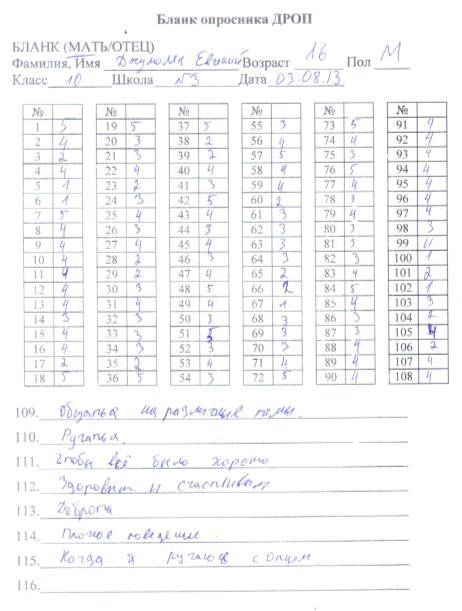 Бланк опросника ДРОП
БЛАНК (МАТЬ/ОТЕЦ)
Фамилия, Имя Евгений Возраст 16 Пол М
Класс 10 Школа №3 Дата 03.08.13
№ № № № № №
1 5 19 5 37 5 55 3 73 5 91 4
2 4 20 3 38 2 56 4 74 4 92 4
3 2 21 3 39 2 57 5 75 3 93 4
4 4 22 4 40 4 58 4 76 5 94 4
5 1 23 2 41 3 59 4 77 4 95 4
6 1 24 3 42 5 60 2 78 3 96 4
7 5 25 4 43 4 61 3 79 4 97 4
8 4 26 3 44 3 62 3 80 3 98 3
9 4 27 4 45 4 63 3 81 3 99 4
10 4 28 2 46 3 64 3 82 3 100 1
11 4 29 2 47 4 65 2 83 4 101 2
12 4 30 3 48 5 66 2 84 5 102 1
13 4 31 4 49 4 67 1 85 4 103 3
14 3 32 3 50 3 68 3 86 3 104 2
15 4 33 3 51 5 69 3 87 3 105 4
16 4 34 3 52 3 70 3 88 4 106 2
17 2 35 2 53 4 71 4 89 4 107 4
18 5 36 5 54 3 72 5 90 4 108 4
109. Общаться на различные темы.
110. Ругаться.
111. Чтобы всё было хорошо
112. Здоровым и счастливым
113. Доброта
114. Плохое поведение
115. Когда я ругаюсь с отцом
116.